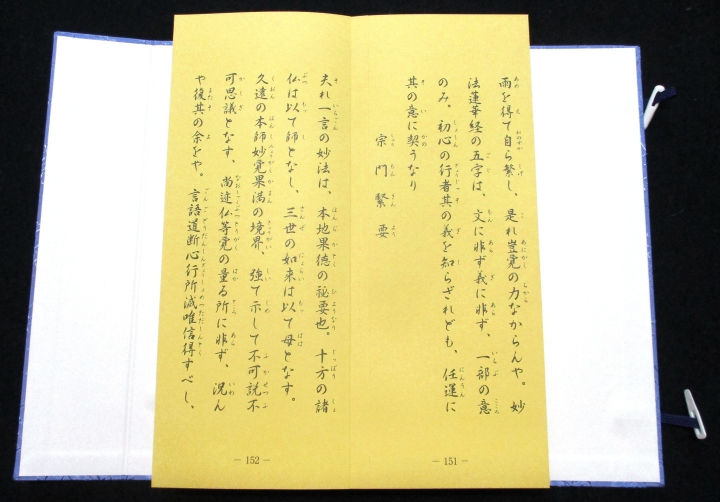 雨を得て自ら繁し、是れ豈覚の力なからんや。妙
法蓮華経の五字は、文に非ず義に非ず、一部の意
のみ。初心の行者其の義を知らざれども、任運に
其の意に契うなり
宗門繫要
夫れ一言の妙法は、本地果徳の秘要也。十方の諸
仏は以て師となし、三世の如来は以て母となす。
久遠の本師妙覚果満の境界、強て示して不可説不
可思議となす、尚迹仏等覚の量る所に非ず、況ん
や後其の余をや。言語道断心行所滅唯信得すべし、
― 151 ―
― 152 ―